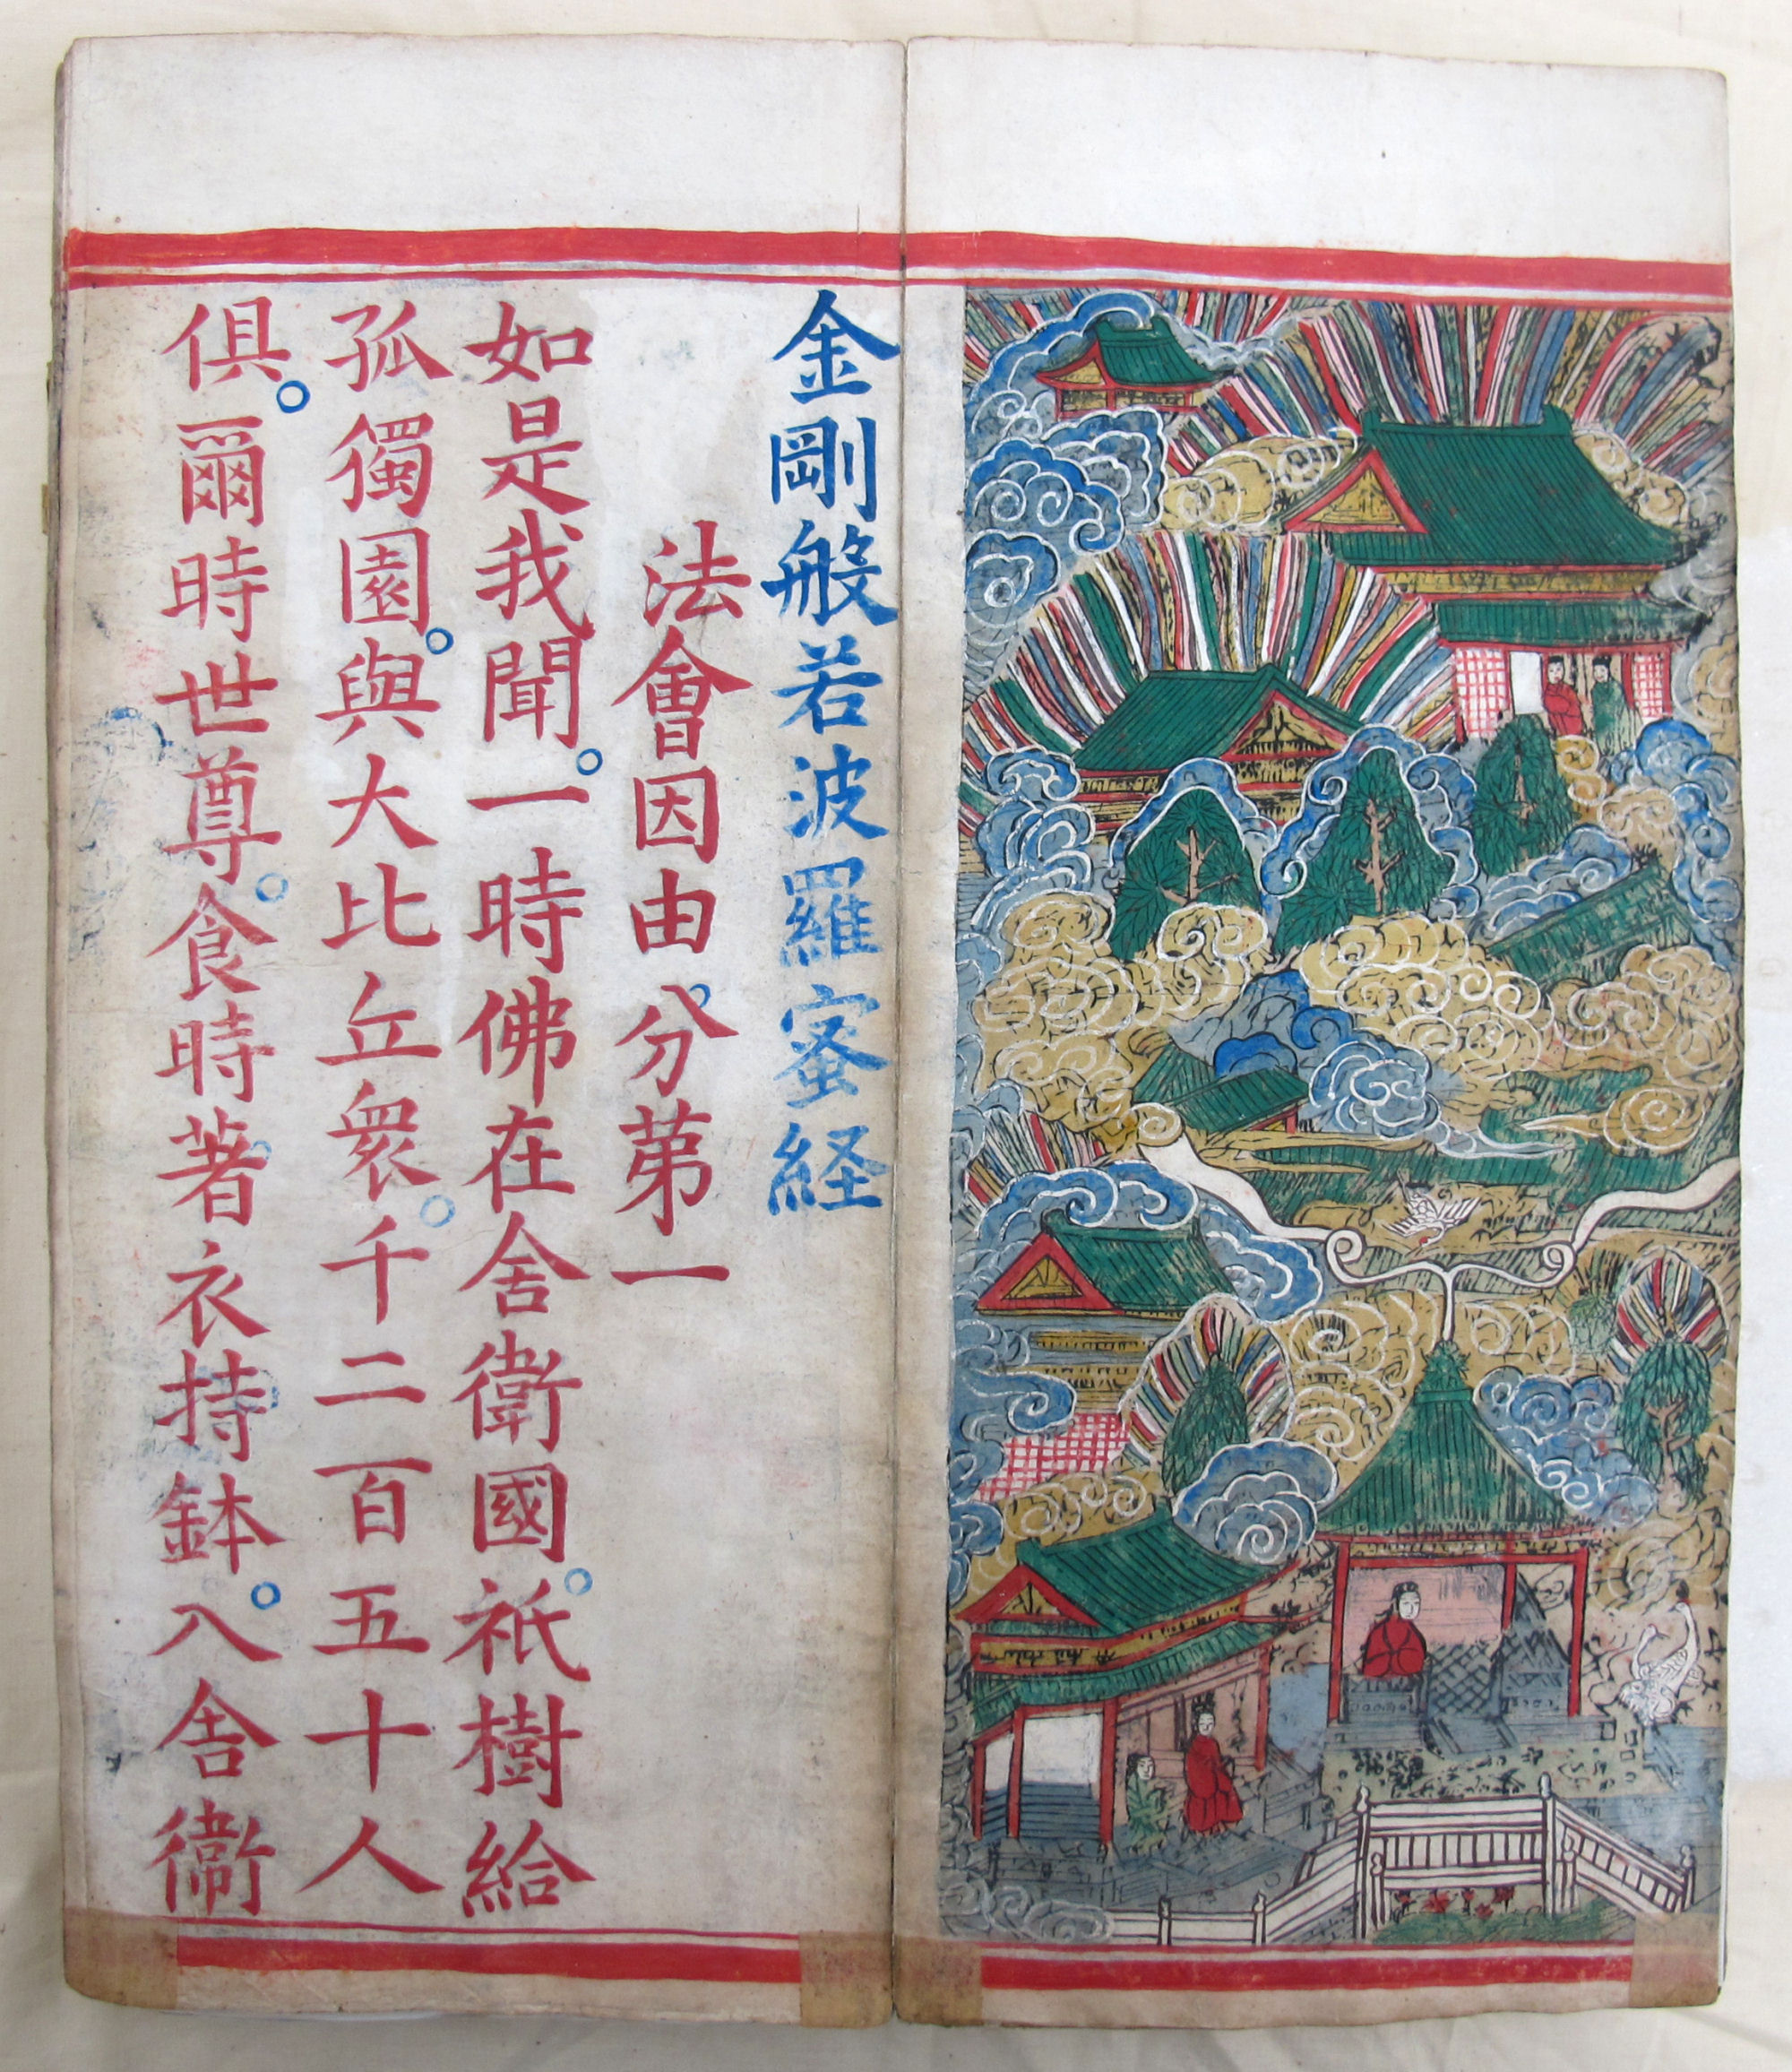 金剛般若波羅蜜経
法會因由分第一
如是我聞。一時佛在舍衛國。祇樹給
孤獨園。與大比丘衆。千二百五十人
俱。爾時世尊。食時著衣持鉢。入舍衛